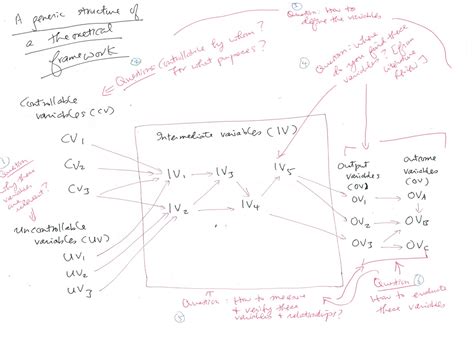 A generic structure of
a theoretical
framework
③
Question: How to
define the variables
④
Question: Controllable by whom?
For what purposes?
④
Question: where
do you find these
variables? [from
literature
Review]
Controllable
variables (CV)
CV1
CV2
CV3
①
Question
why these
variables
are relevant?
Uncontrollable
variables (UV)
UV1
UV2
UV3
Intermediate variables (IV)
IV1
IV3
IV5
IV2
IV4
...
Output
variables
(OV)
OV1
OV2
OV3
Outcome
variables
(OV)
OVA
OVB
OVC
Question: How to measure
& verify these
variables & relationships?
⑤
Question
How to evaluate
these variables